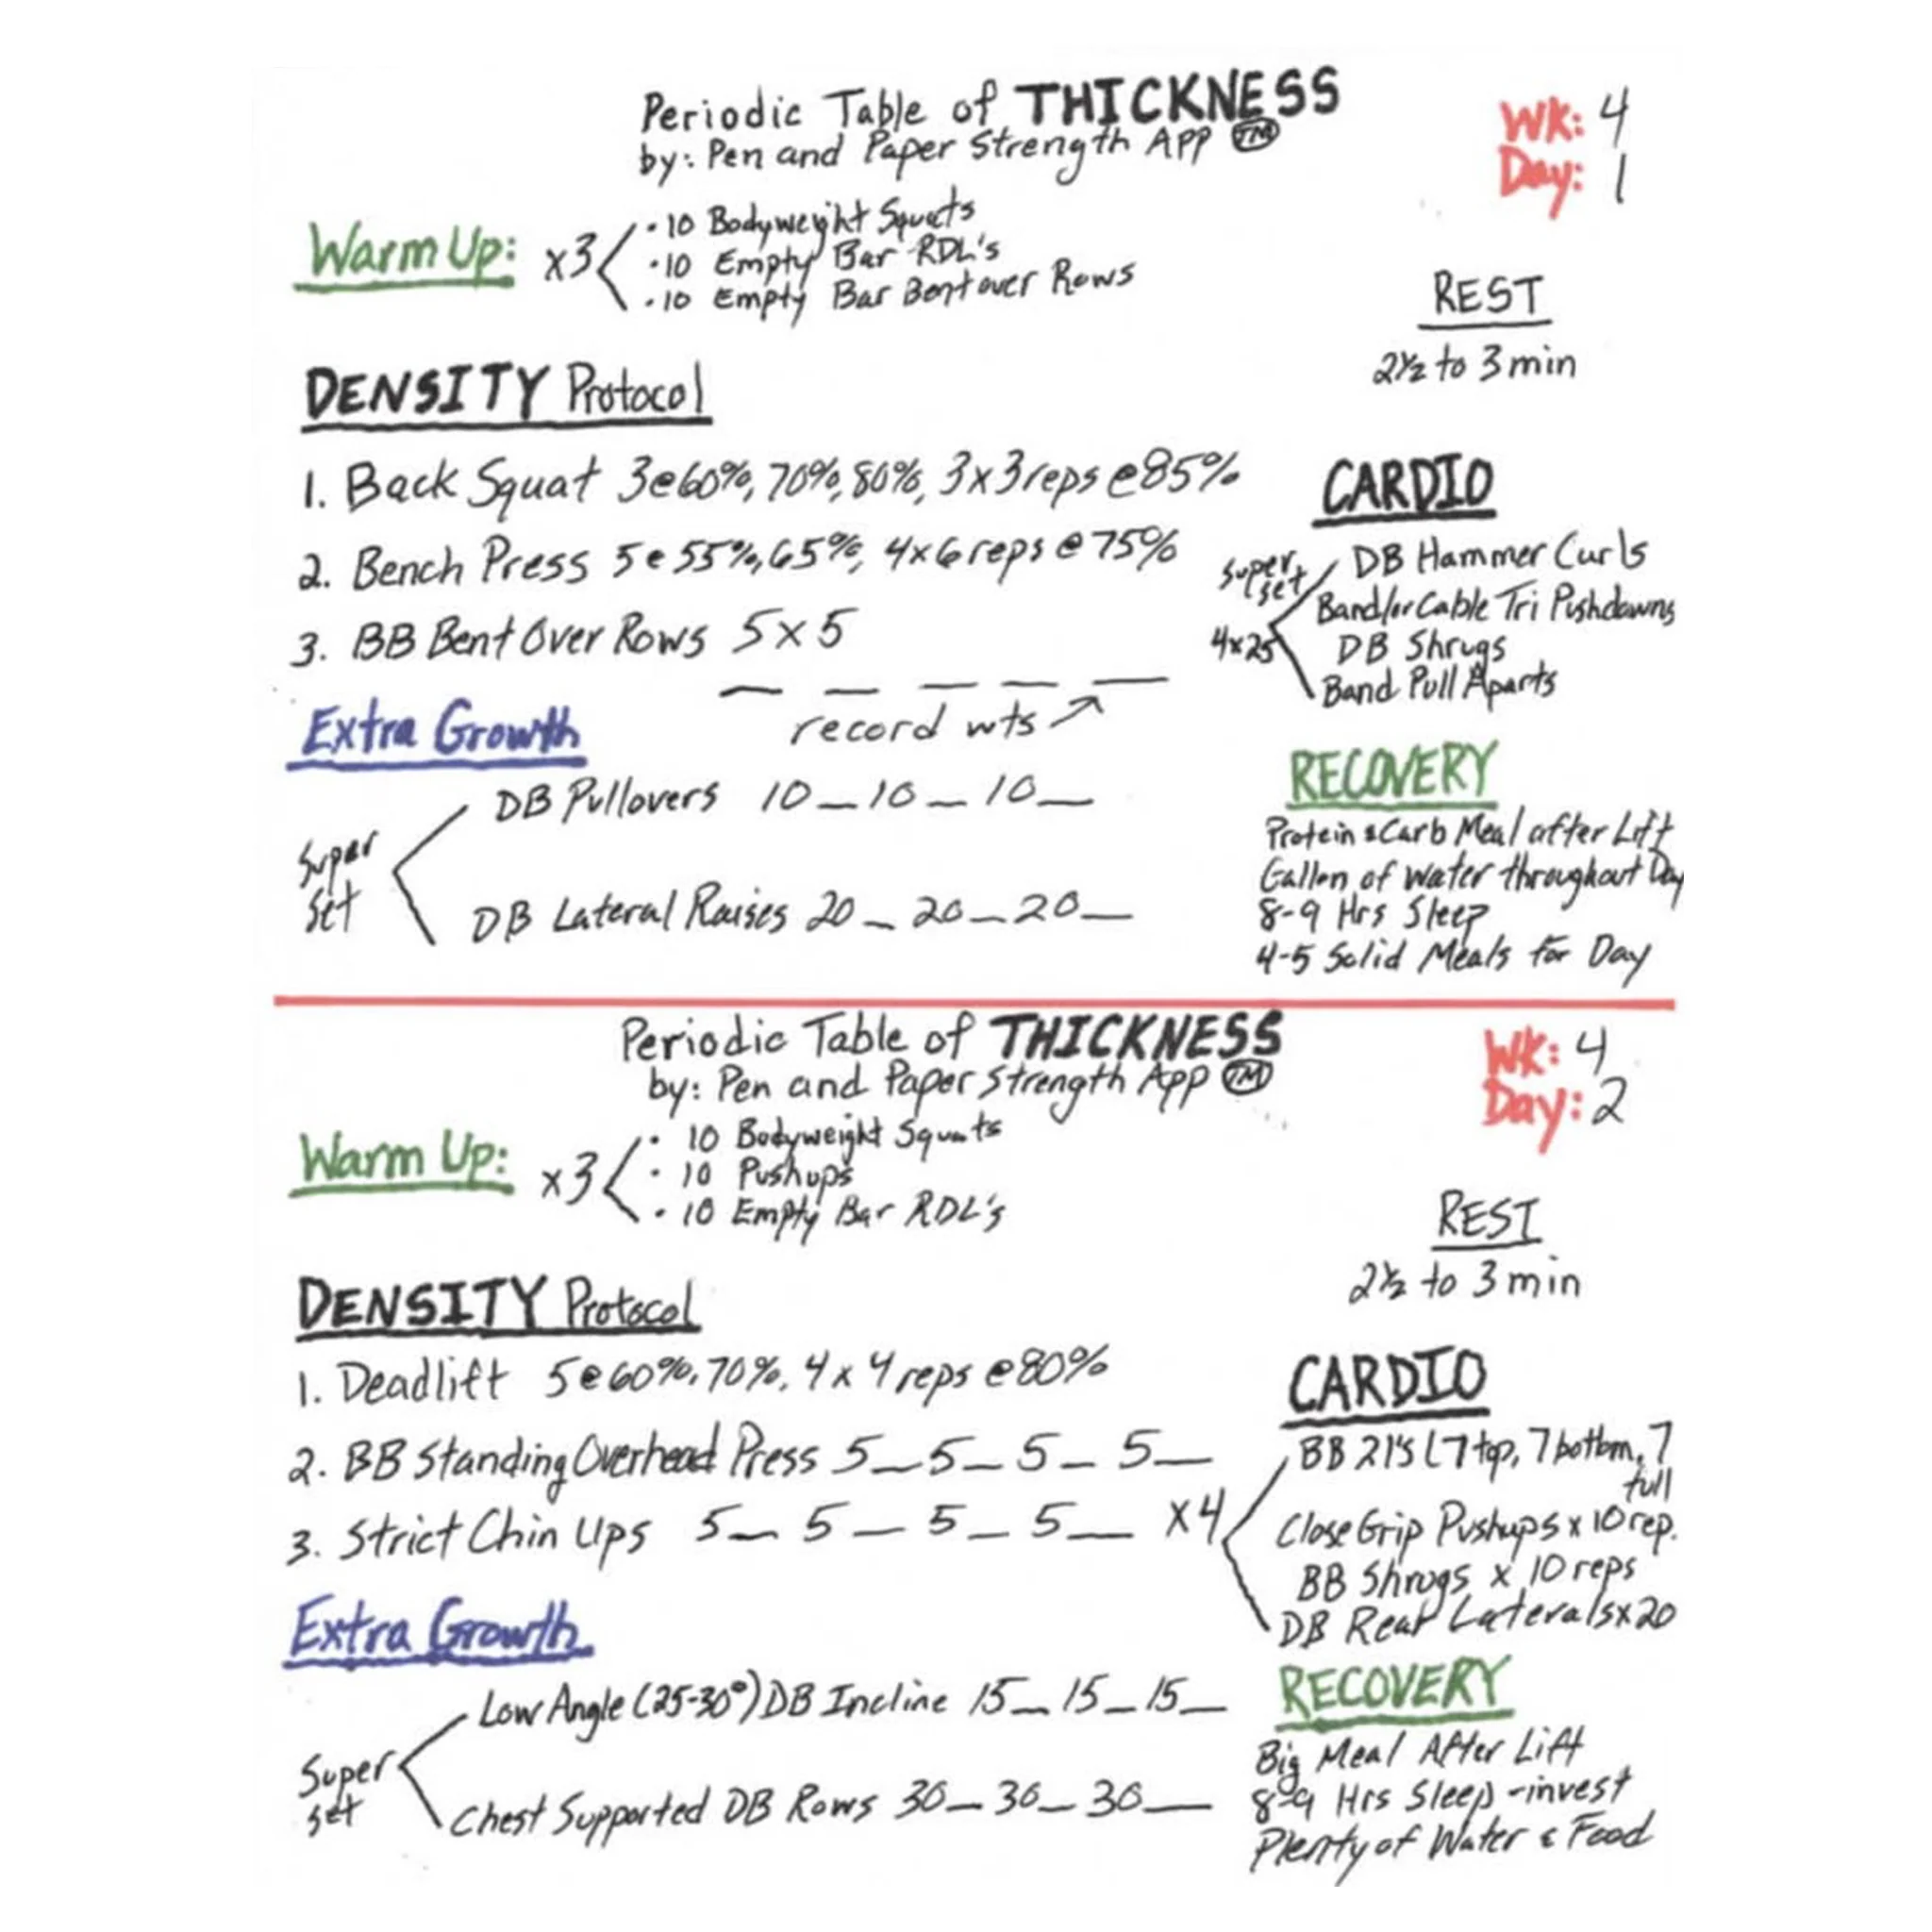 Periodic Table of THICKNESS
by: Pen and Paper Strength App TM
Wk: 4
Day: 1
Warm Up: x3
• 10 Bodyweight Squats
• 10 Empty Bar RDL's
• 10 Empty Bar Bent over Rows
REST
2½ to 3 min
DENSITY Protocol
1. Back Squat 3@60%, 70%, 80%, 3x3 reps @85%
2. Bench Press 5@55%, 65%, 4x6 reps @75%
3. BB Bent Over Rows 5x5
record wts
CARDIO
Super set
4x25
DB Hammer Curls
Band/or Cable Tri Pushdowns
DB Shrugs
Band Pull Aparts
Extra Growth
Super Set
DB Pullovers 10_10_10_
DB Lateral Raises 20_20_20_
RECOVERY
Protein & Carb Meal after Lift
Gallon of water throughout Day
8-9 Hrs Sleep
4-5 Solid Meals for Day
Periodic Table of THICKNESS
by: Pen and Paper Strength App TM
Wk: 4
Day: 2
Warm Up: x3
• 10 Bodyweight Squats
• 10 Pushups
• 10 Empty Bar RDL's
REST
2½ to 3 min
DENSITY Protocol
1. Deadlift 5@60%, 70%, 4x4 reps @80%
2. BB Standing Overhead Press 5_5_5_5_
3. Strict Chin Ups 5_5_5_5_
CARDIO
x4
BB 21's (7 top, 7 bottom, 7
full
Close Grip Pushups x 10 rep.
BB Shrugs x 10 reps
DB Rear Laterals x 20
Extra Growth
Super set
Low Angle (25-30°) DB Incline 15_15_15_
Chest Supported DB Rows 30_30_30_
RECOVERY
Big Meal After Lift
8-9 Hrs Sleep -invest
Plenty of Water & Food